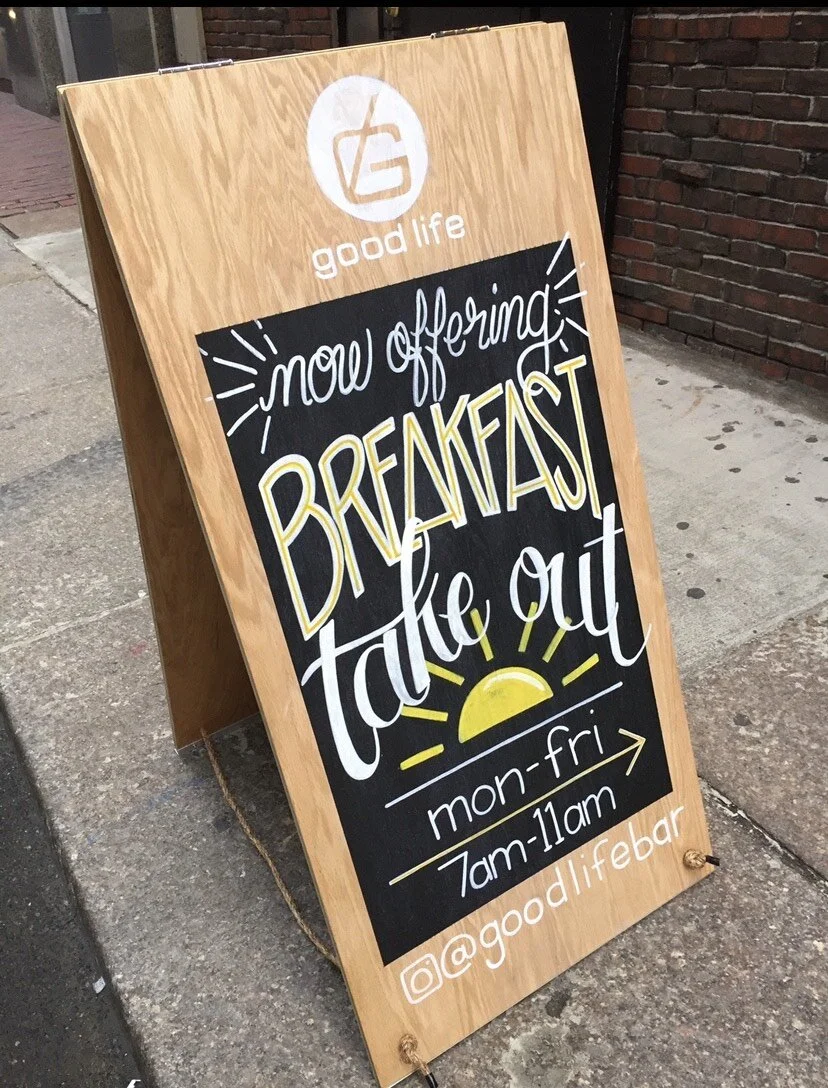 G
good life
now offering
BREAKFAST
take out
mon-fri
7am-11am
@goodlifebar